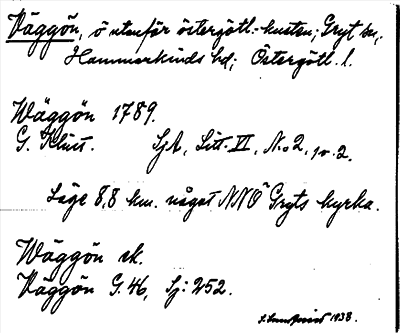 Väggön, ö utanför östergötl.-kusten; Gryt sn,
Hammarkinds hd; Östergötl. l.
Wäggön 1789.
G. Klint. SjA, Litt. VI, No 2, p. 2.
Läge 8,8 km. något NNO Gryts kyrka.
Wäggön sk.
Väggön G. 46, Sj: 252.
1938.